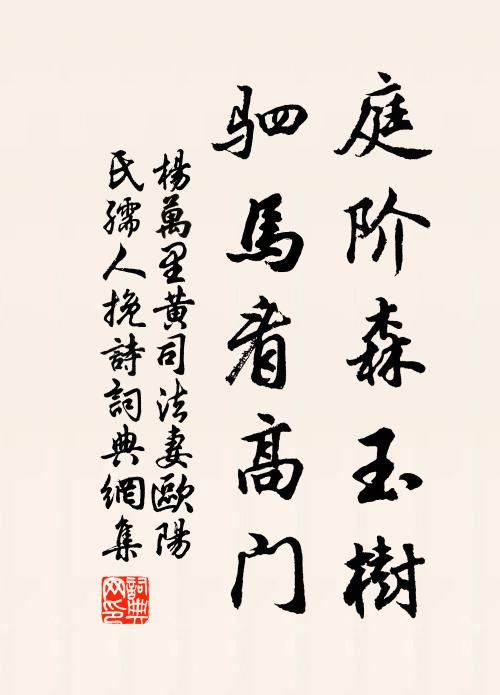 庭阶森玉樹
驷馬看高门
楊萬里黄司法妻歐陽
氏孺人挽詩詞典網集